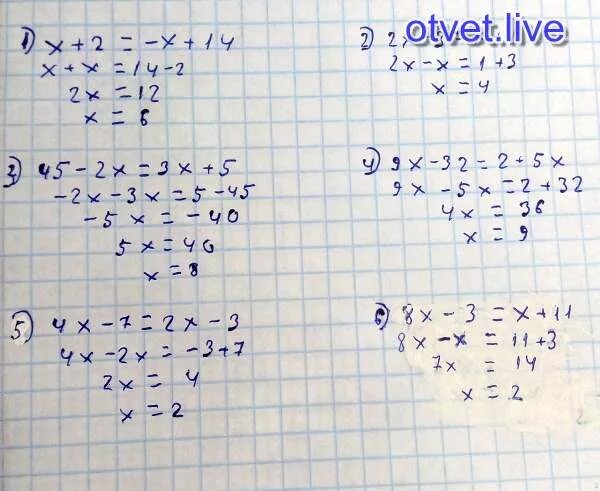 otvet.live
1) x + 2 = -x + 14
x + x = 14 - 2
2x = 12
x = 6
2) 2x
2x - x = 1 + 3
x = 4
3) 45 - 2x = 3x + 5
-2x - 3x = 5 - 45
-5x = -40
5x = 40
x = 8
4) 9x - 32 = 2 + 5x
9x - 5x = 2 + 32
4x = 36
x = 9
5) 4x - 7 = 2x - 3
4x - 2x = -3 + 7
2x = 4
x = 2
6) 8x - 3 = x + 11
8x - x = 11 + 3
7x = 14
x = 2